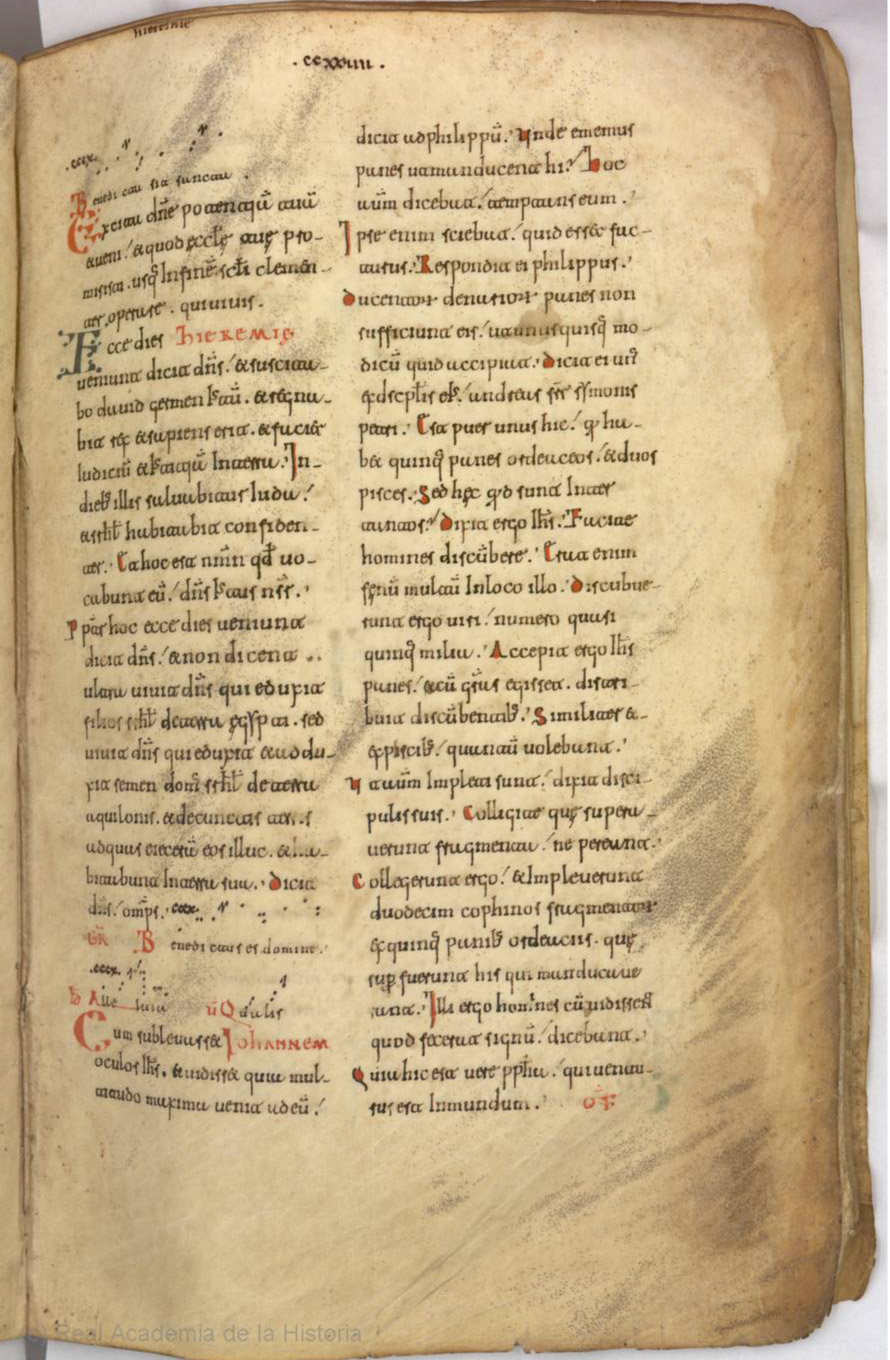 hieremie
. ccxxiiii .
Benedicam
Excita dñe potentiã tuã
et ueni. et quod ęcclę tuę pro-
misisti. usq̨ in finẽ sc̄li clemen-
ter operare. qui uiuis.
Ecce dies hieremie
ueniunt dicit dñs. et suscita-
bo dauid germen iustũ. et regna-
bit rex et sapiens erit. et faciet
iudiciũ et iustitiã in terra. In
dieb illis saluabitur iuda.
et isrhł habitabit confiden-
ter. Et hoc est nomen qđ uo-
cabunt eũ. dñs iustus nsr.
Ppter hoc ecce dies ueniunt
dicit dñs. et non dicent
ultra uiuit dñs qui eduxit
filios isrhł de terra egypti. sed
uiuit dñs qui eduxit et addu-
xit semen domꝰ isrhł de terra
aquilonis. et de cunctis terris
ad quas eieceram eos illuc. et ha-
bitabunt in terra sua. Dicit
dñs. omps.
GR Benedictus es domine.
Alleluia
Cum subleuasset Iohannem
oculos ihs. et uidisset quia mul-
titudo maxima uenit ad eũ.
dicit ad philippũ. Unde ememus
panes ut manducent hi. Hoc
autẽ dicebat. temptans eum.
Ipse enim sciebat. quid esset fac-
turus. Respondit ei philippus.
Ducentorum denariorum panes non
sufficiunt eis. ut unusquisq̨ mo-
dicũ quid accipiat. Dicit ei unꝰ
ex dscplis eiꝰ. andreas fr̄ simonis
petri. Est puer unus hic. qui ha-
bet quinq̨ panes ordeaceos. et duos
pisces. Sed hęc quid sunt inter
tantos. Dixit ergo ihs. Facite
homines discũbere. Erat enim
fęnũ multũ in loco illo. Discubue-
runt ergo uiri. numero quasi
quinq̨ milia. Accepit ergo ihs
panes. et cũ grãs egisset. distri-
buit discũbentib. Similiter et
ex piscib. quantũ uolebant.
Ut autẽm impleti sunt. dixit disci-
pulis suis. Colligite quę supera-
uerunt fragmenta. ne pereant.
Collegerunt ergo. et impleuerunt
duodecim cophinos fragmentorum
ex quinq̨ panib ordeaciis. quę
super fuerunt his qui manducaue
runt. Illi ergo homines cũ uidissent
quod fecerat signũ. dicebant.
Quia hic est uere ppħa. qui uentu-
rus est in mundum. OF
Real Academia de la Historia